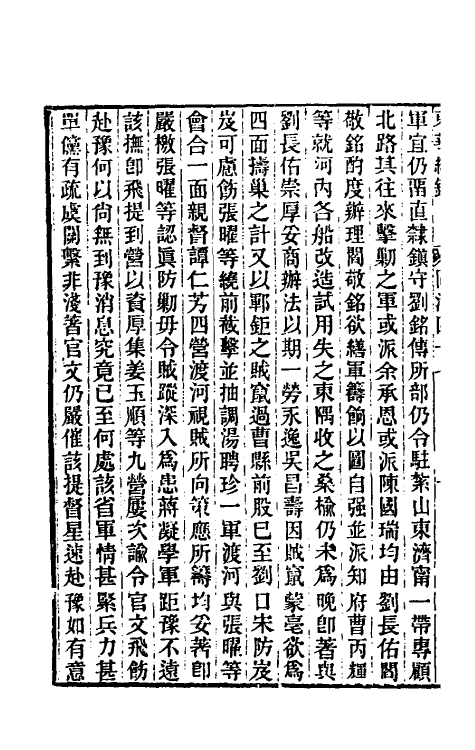 軍宜仍畱直隸鎭守劉銘傳所部仍令駐萊山東濟甯一帶專顧
北路其往來擊勦之軍或派余承恩或派陳國瑞均由劉長佑閻
敬銘酌度辦理閻敬銘欲繕軍籌餉以圖自强並派知府曹丙輝
等就河內各船改造試用失之東隅收之桑榆仍未爲晚卽著與
劉長佑崇厚妥商辦法以期一勞永逸吳昌壽因賊竄蒙亳欲爲
四面擣巢之計又以鄆鉅之賊竄過曹縣前股已至劉口宋防岌
岌可慮飭張曜等繞前截擊並抽調湯聘珍一軍渡河與張曜等
會合一面親督譚仁芳四營渡河視賊所向策應所籌均妥著卽
嚴檄張曜等認眞防勦毋令賊蹤深入爲患蔣凝學軍距豫不遠
該撫卽飛提到營以資厚集姜玉順等九營屢次諭令官文飛飭
赴豫何以尙無到豫消息究竟已至何處該省軍情甚緊兵力甚
單儻有疏虞關繫非淺著官文仍嚴催該提督星速赴豫如有意